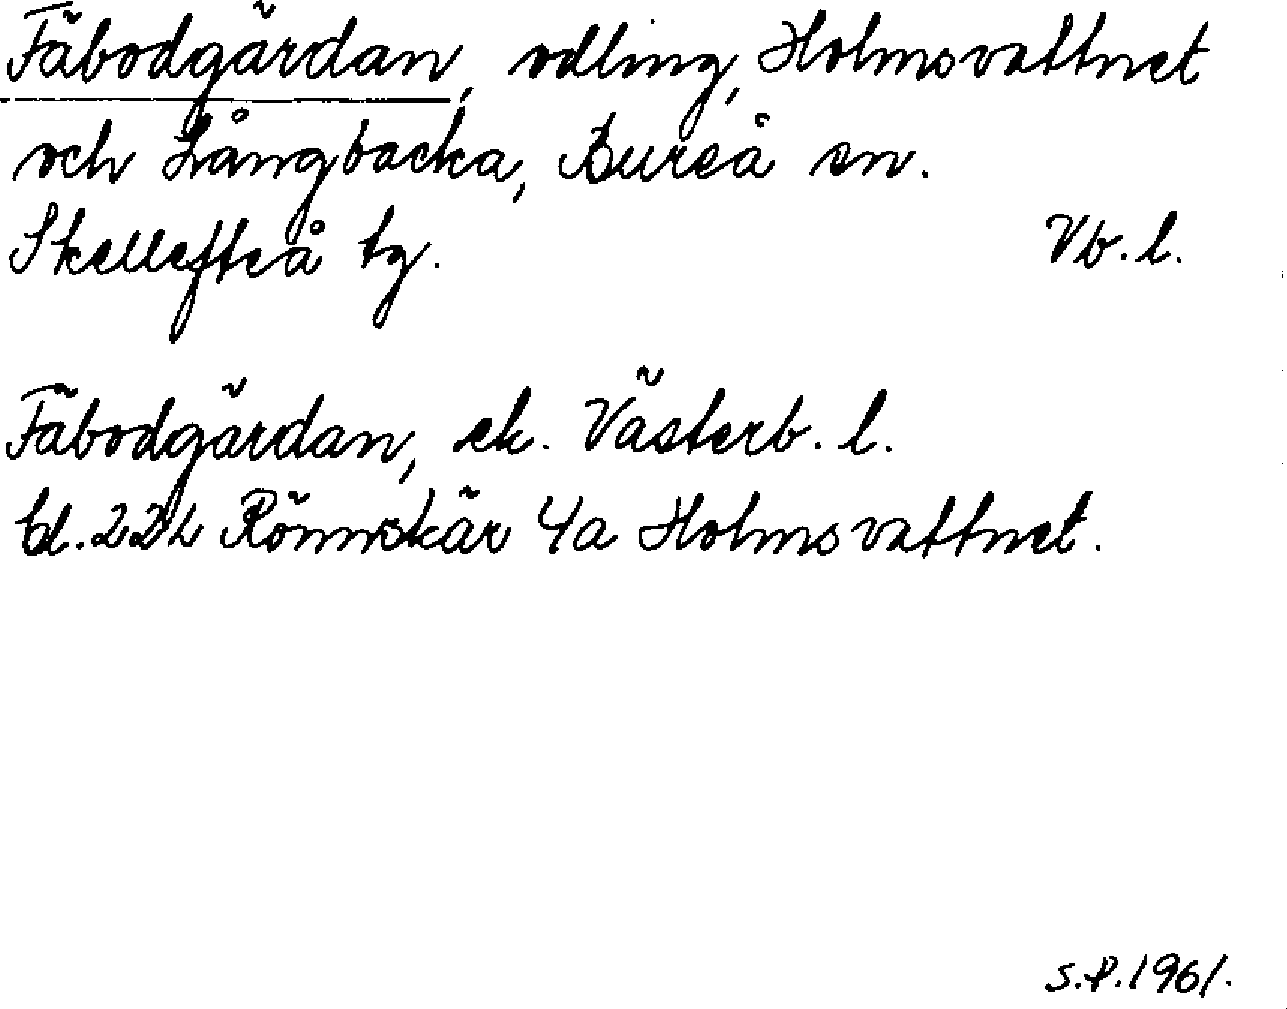 Fäbodgärdan, odling, Holmsvattnet
och Långbacka, Bureå sn.
Skellefteå tg. Vb. l.
Fäbodgärdan, ek. Västerb. l.
bl. 22L Rönnskär 4a Holmsvattnet.
S.P. 1961.